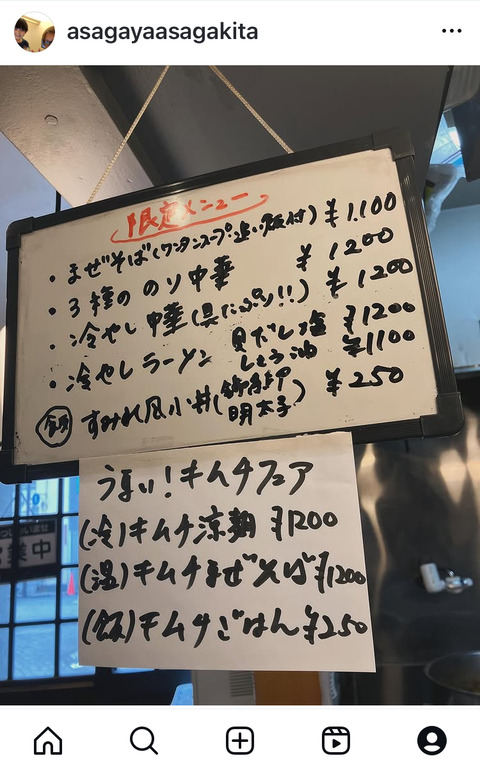 asagayaasagakita
限定メニュー
・まぜそば(ワンタンスープ、追い飯付) ¥1,100
・3種ののり中華 ¥1200
・冷やし中華(具だぷり!!) ¥1200
・冷やしラーメン 貝だし塩 ¥1200
しょう油 ¥1100
飯 すみれ風小丼( 明太子) ¥250
うまい!キムチフェア
(冷)キムチ涼麺 ¥1200
(温)キムチまぜそば ¥1200
(飯)キムチごはん ¥250
業中